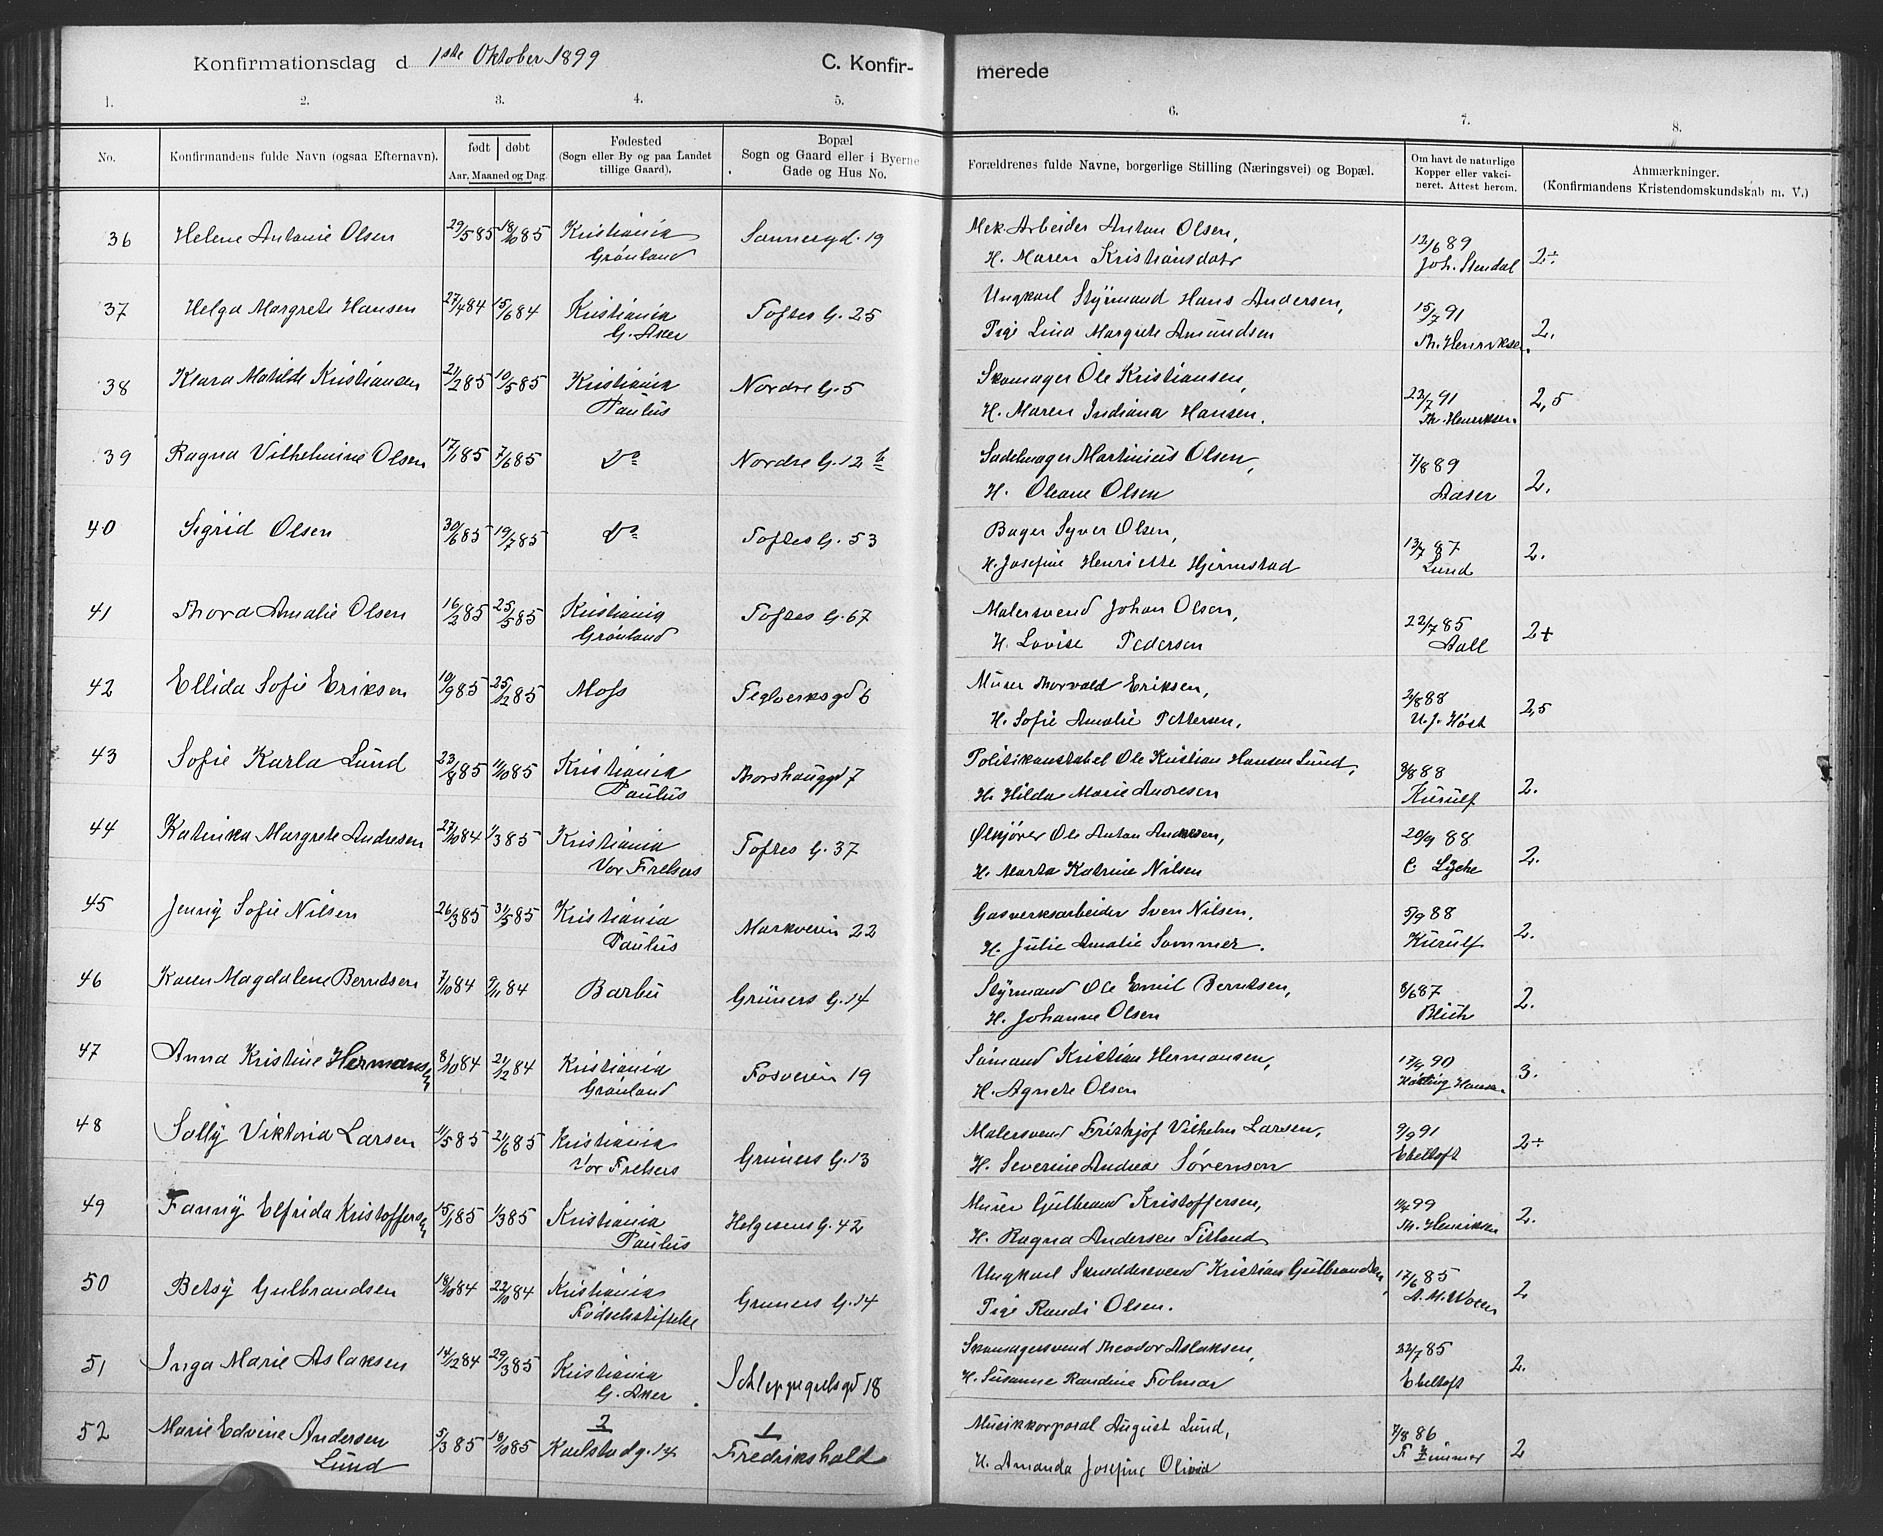 Konfirmationsdag d 1ste Oktober 1899 C. Konfir- merede
1. 2. 3. 4. 5. 6. 7. 8.
No.
Konfirmandens fulde Navn (ogsaa Efternavn).
født døbt
Aar, Maaned og Dag.
Fødested
(Sogn eller By og paa Landet
tillige Gaard).
Bopæl
Sogn og Gaard eller i Byerne
Gade og Hus No.
Forældrenes fulde Navne, borgerlige Stilling (Næringsvei) og Bopæl.
Om havt de naturlige
Kopper eller vakci-
neret. Attest herom.
Anmærkninger.
(Konfirmandens Kristendomskundskab m. V.)
36 Helene Antonie Olsen 29/5 85 18/10 85 Kristiania Sannergd. 19 Mek. Arbeider Anton Olsen, 12/6 89 2÷
Grønland H. Maren Kristiansdatr Joh. Stendal
37 Helga Margrete Hansen 27/4 84 15/6 84 Kristiania Toftes G. 25 Ungkarl Styrmand Hans Andersen, 15/7 91 2.
G. Aker Pige Lina Margrete Amundsen Th. Henriksen
38 Klara Matilde Kristiansen 21/2 85 10/5 85 Kristiania Nordre G. 5 Skomager Ole Kristiansen, 22/7 91 2,5
Paulus H. Maren Indiana Hansen. Th. Henriksen
39 Ragna Vilhelmine Olsen 17/1 85 7/6 85 do Nordre G. 12 b Sadelmager Martinius Olsen, 7/8 89 2.
H. Oleane Olsen Aaser
40 Sigrid Olsen 30/6 85 19/7 85 do Toftes G. 53 Bager Syver Olsen, 13/7 87 2.
H. Josefine Henriette Hjermstad Lund
41 Thora Amalie Olsen 16/2 85 25/5 85 Kristiania Toftes G. 67 Malersvend Johan Olsen, 22/7 85 2+
Grønland H. Lovise Pedersen Aall
42 Ellida Sofie Eriksen 10/9 85 25/12 85 Moss Teglverksgd 6 Murer Thorvald Eriksen, 2/8 88 2,5
H. Sofie Amalie Pettersen, U. J. Høst
43 Sofie Karla Lund 23/8 85 11/10 85 Kristiania Thorshauggd 7 Politikonstabel Ole Kristian Hansen Lund, 3/8 88 2.
Paulus H. Hilda Marie Andresen Kurulf
44 Katinka Margrete Andresen 27/10 84 1/3 85 Kristiania Toftes G. 37 Ølkjører Ole Anton Andresen, 20/9 88 2.
Vor Frelsers H. Marta Katrine Nilsen C Lyche
45 Jenny Sofie Nilsen 26/3 85 31/5 85 Kristiania Markveien 22 Gasverksarbeider Sven Nilsen, 5/9 88 2.
Paulus H. Julie Amalie Sommer. Kurulf
46 Karen Magdalene Berntsen 7/10 84 9/11 84 Barbu Grüners G. 14 Styrmand Ole Emil Berntsen, 8/6 87 2.
H. Johanne Olsen Blich
47 Anna Kristine Hermansen 8/10 84 21/12 84 Kristiania Fosveien 19 Sømand Kristian Hermansen, 17/9 90 3.
Grønland H. Agnete Olsen Hansen
48 Solly Viktoria Larsen 11/5 85 21/6 85 Kristiania Grüners G. 13 Malersvend Frithjof Vilhelm Larsen, 9/9 91 2÷
Vor Frelsers H. Severine Andrea Sørensen Ebeltoft
49 Fanny Elfrida Kristoffersen 15/1 85 1/3 85 Kristiania Helgesens G. 42 Murer Gulbrand Kristoffersen, 99 2.
Paulus H. Ragna Andersen Th. Henriksen
50 Betsy Gulbrandsen 18/10 84 22/10 84 Kristiania Gruners G. 14 Ungkarl Snedkersvend Kristian Gulbrandsen, 17/6 85 2
Fødselsstiftelse Pige Randi Olsen. A. M.
51 Inga Marie Aslaksen 14/12 84 29/3 85 Kristiania Schleppegrelsgd 18 Skomagersvend Theodor Aslaksen, 22/7 85 2.
G. Aker H. Susanne Randine Folmar Ebeltoft
52 Marie Edvine Andersen 5/3 85 18/10 85 2 1 Musikkorporal August Lund, 7/8 86 2
Lund Karlstadg. 14 Fredrikshald H. Amanda Josefine Olivia F Zimmer